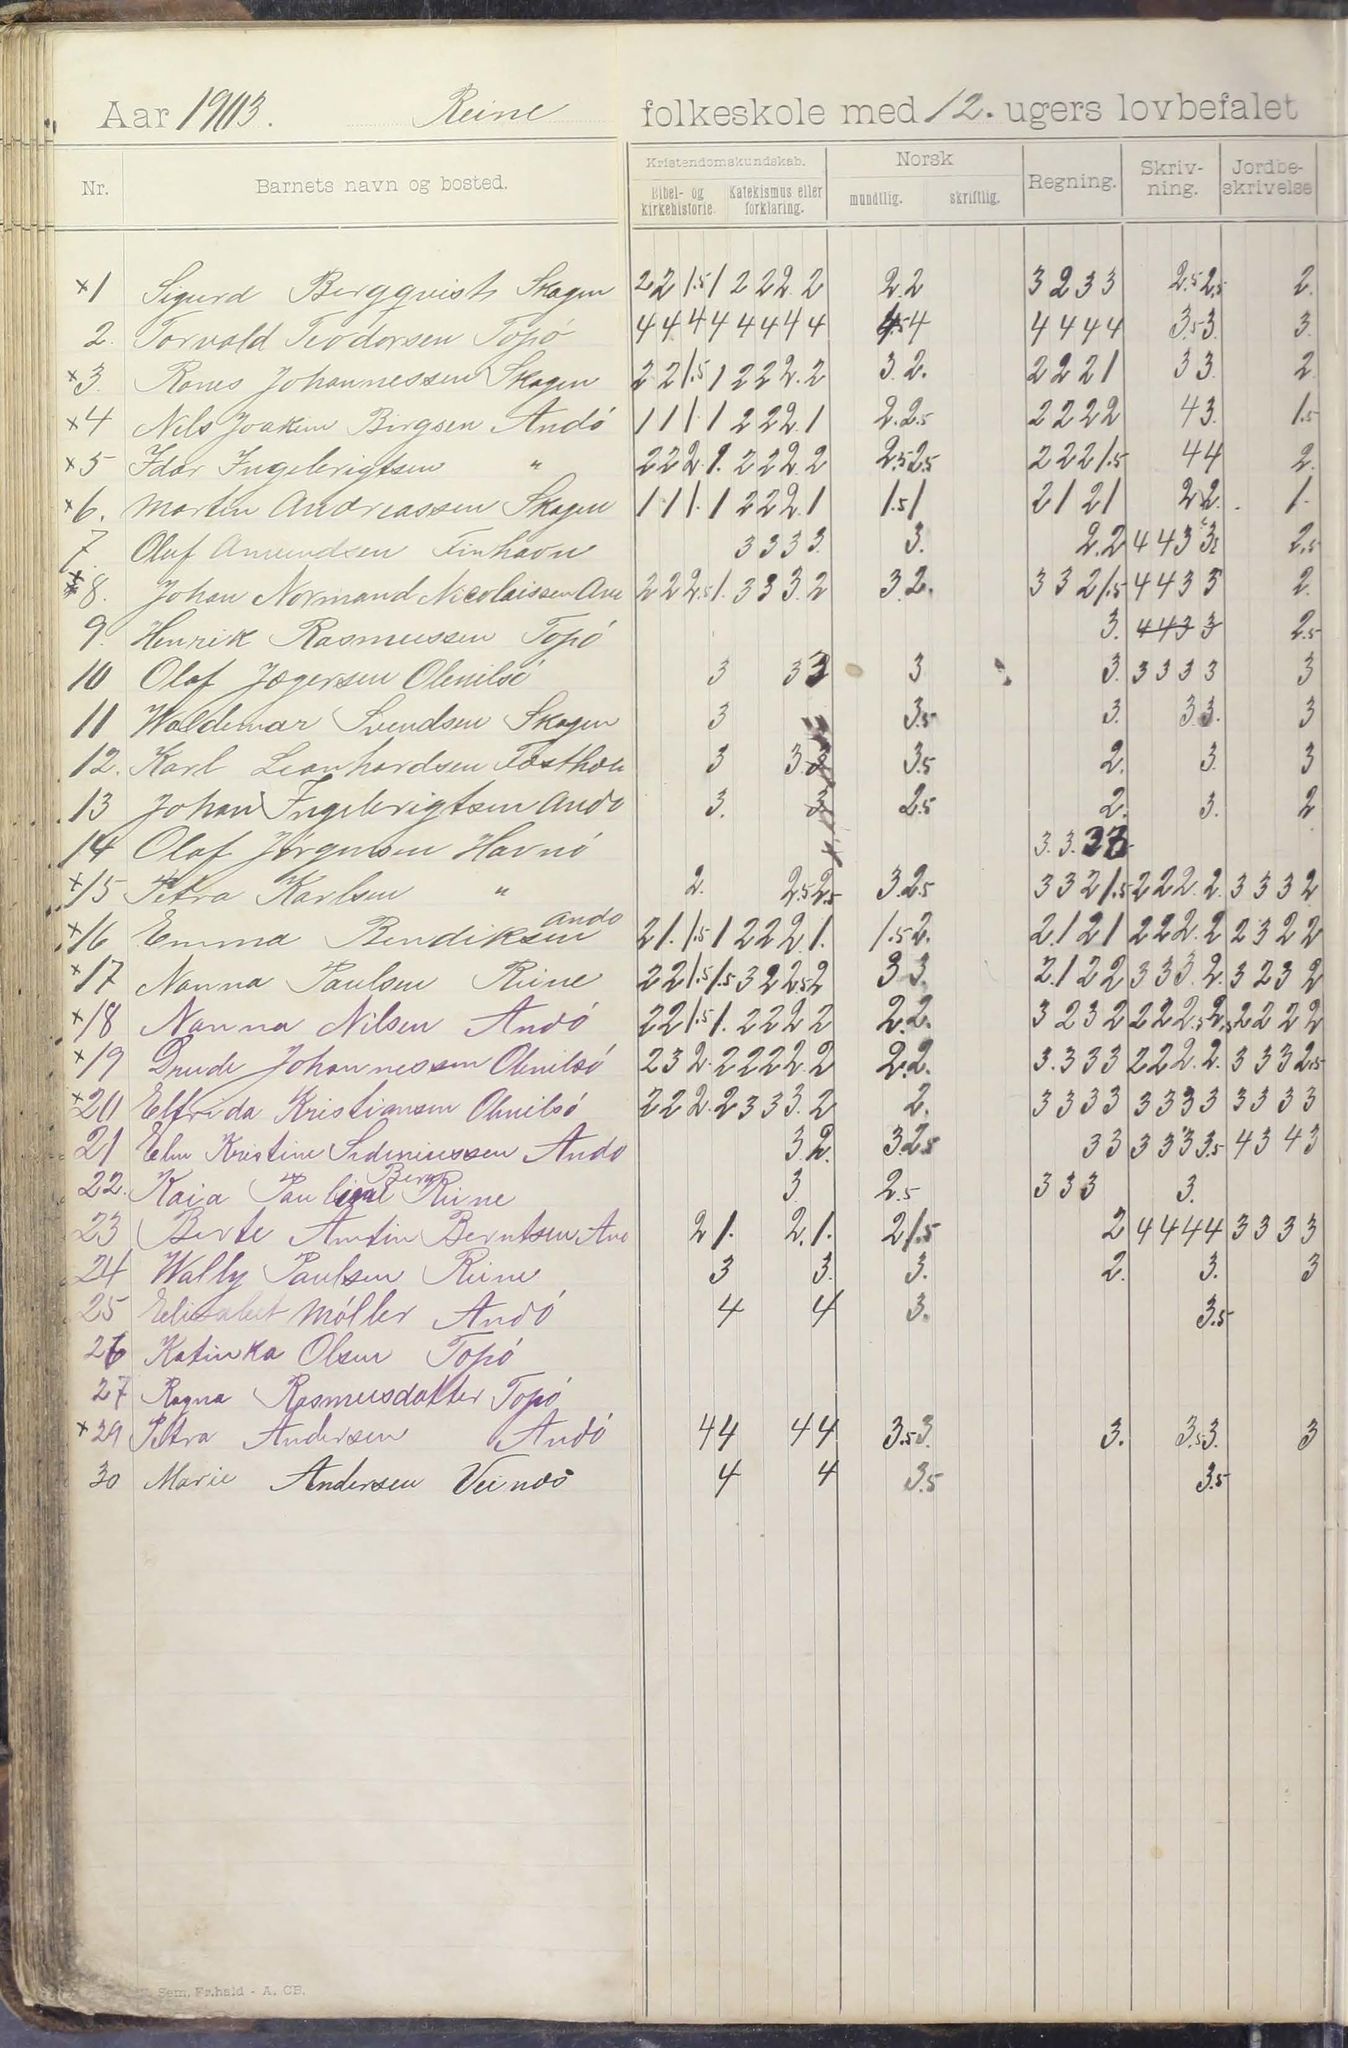 Aar 1903. Reine folkeskole med 12. ugers lovbefalet
Nr. Barnets navn og bosted. Kristendomskundskab. Norsk Regning. Skriv-ning. Jordbe-skrivelse
Bibel- og kirkehistorie. Katekismus eller forklaring. mundtlig. skriftlig.
×1 Sigurd Bergqvist Skagen 2 2 1.5 1 2 2 2 2 2.2 3 2 3 3 2.5 2.5 2.
2. Torvald Teodorsen Topö 4 4 4 4 4 4 4 4 4.5 4 4 4 4 4 3.5 3. 3.
×3. Johannessen Skagen 2 2 1.5 1 2 2 2. 2 3 2. 2 2 2 1 3 3 2
×4 Nils Joakim Birgsen Andö 1 1 1 1 2 2 2. 1 2. 2.5 2 2 2 2 4 3. 1.5
×5 Idar Ingebrigtsen " 2 2 2. 1. 2 2 2 2 2.5 2.5 2 2 2 1.5 4 4 2.
×6. Martin Andreassen Skagen 1 1 1. 1 2 2 2 1 1.5 1 2 1 2 1 2 2. 1.
7. Olaf Amundsen 3 3 3 3. 3. 2. 2 4 4 3 3 2.5
×8. Johan Normand Nicolaissen 2 2 2.5 1. 3 3 3. 2 3 2. 3 3 2 1.5 4 4 3 3 2.
9. Henrik Rasmussen Topö 3. 4 4 3 3 2.5
10 Olaf Jægersen Olenilsö 3 3 3 3 3. 3 3 3 3 3
11 Waldemar Svendsen Skagen 3 3.5 3. 3 3. 3
12. Karl Leonhardsen 3 3. 3 3.5 2. 3. 3
13 Johan Ingebrigtsen Andö 3. 3 2.5 2. 3. 2
14 Olaf Jörgensen Havnö 3. 3.
×15 Petra Karlsen " 2. 2.5 2.5 3. 2.5 3 3 2 1.5 2 2 2. 2. 3 3 3 2
×16 Emma Bendiksen Andö 2 1. 1.5 1 2 2 2 1. 1.5 2. 2. 1 2 1 2 2 2. 2 2 3 2 2
×17 Nanna Paulsen Reine 2 2 1.5 1.5 3 2 2.5 2 3 3. 2. 1 2 2 3 3 3. 2. 3 2 3 2
×18 Nanna Nilsen Andö 2 2 1.5 1. 2 2 2 2 2. 2. 3 2 3 2 2 2 2.5 2.5 2 2 2 2
×19 Drude Johannessen Olenilsö 2 3 2. 2 2 2 2. 2 2. 2. 3. 3 3 3 2 2 2. 2. 3 3 3 2.5
×20 Elfrida Kristiansen Olenilsö 2 2 2. 2 3 3 3. 2 2. 3 3 3 3 3 3 3 3 3 3 3 3
21 Kristine Andö 3 2. 3 2.5 3 3 3 3 3 3.5 4 3 4 3
22. Kaia Pauline Berg Reine 3 2.5 3 3 3 3.
23 Berte Berntsen 2 1. 2. 1. 2 1.5 2 4 4 4 4 3 3 3 3
24 Wally Paulsen Reine 3 3. 3. 2. 3. 3
25 Elisabet Möller Andö 4 4 3. 3.5
26 Katinka Olsen Topö
27 Ragna Rasmusdatter Topö
×29 Petra Andersen Andö 4 4 4 4 3.5 3. 3. 3.5 3. 3
30 Marie Andersen 4 4 3.5 3.5
Sem, Fr.hald - A. CB.